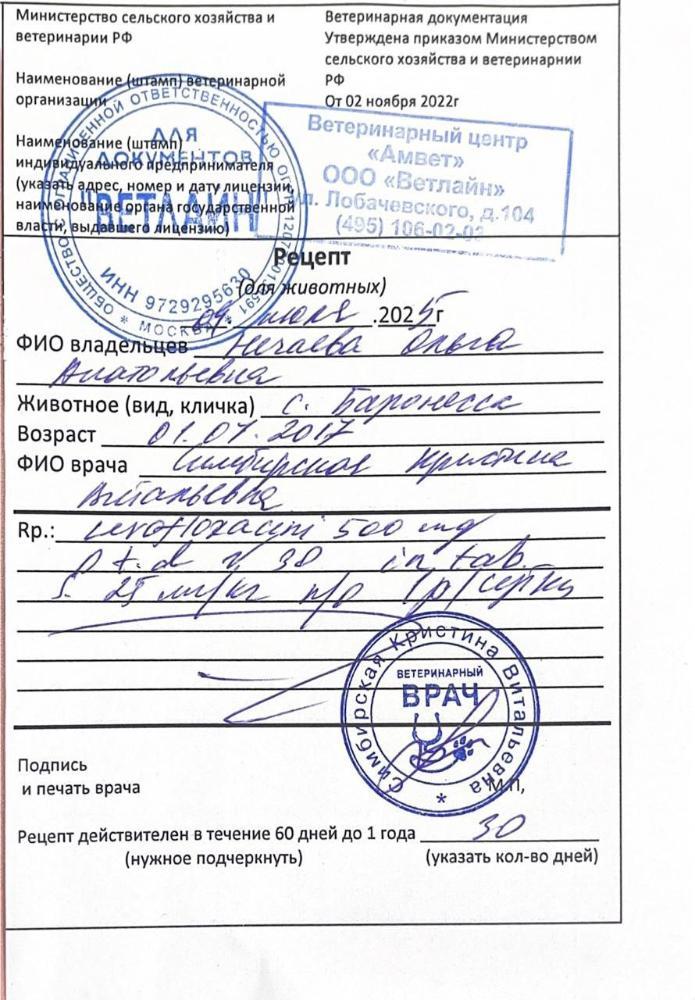 Министерство сельского хозяйства и
ветеринарии РФ
Ветеринарная документация
Утверждена приказом Министерством
сельского хозяйства и ветеринарнии
РФ
От 02 ноября 2022г
Наименование (штамп) ветеринарной
организации
Наименование (штамп)
индивидуального предпринимателя
(указать адрес, номер и дату лицензии,
наименование органа государственной
власти, выдавшего лицензию)
ДЛЯ
ДОКУМЕНТОВ
"ВЕТЛАЙН"
ИНН 9729295630
* МОСКВА *
Ветеринарный центр
«Амвет»
ООО «Ветлайн»
ул. Лобачевского, д.104
(495) 106-02-02
Рецепт
(для животных)
июля .2025г
ФИО владельцев Нечаева Ольга
Анатольевна
Животное (вид, кличка) с. Баронесса
Возраст 01.07.2017
ФИО врача Симбирская Кристина
Витальевна
Rp.: Levofloxacini 500 mg
D.t.d. N 30 in tab.
S. 25 мг/кг п/о 1р/сутки
Симбирская Кристина Витальевна
ВЕТЕРИНАРНЫЙ
ВРАЧ
Подпись
и печать врача
М.П,
Рецепт действителен в течение 60 дней до 1 года 30
(нужное подчеркнуть) (указать кол-во дней)